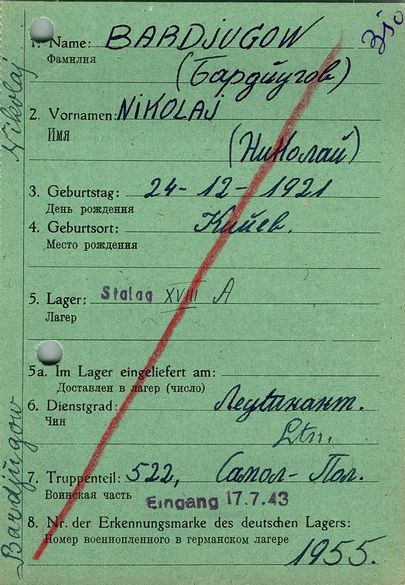 1. Name: BARDJUGOW
Фамилия
(Бардйугов)
2. Vornamen: NIKOLAJ
Имя
(Николай)
3. Geburtstag: 24-12-1921
День рождения
4. Geburtsort: Кийев.
Место рождения
5. Lager: Stalag XVIII A
Лагер
5a. Im Lager eingeliefert am:
Доставлен в лагер (число)
6. Dienstgrad: Леутинант.
Чин
Ltn.
7. Truppenteil: 522, Самол-Пол.
Воинская часть
Eingang 17.7.43
8. Nr. der Erkennungsmarke des deutschen Lagers:
Номер военнопленного в германском лагере
1955.
Nikolaj
Bardjugow